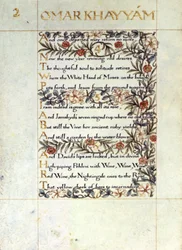 2 OMAR KHAYYÁM
Now the new year reviving old desires
The thoughtful soul to solitude retires
Where the White Hand of Moses on the bough
Puts forth, and Jesus from the ground
indeed is gone with all its rose
And Jamshyd's seven ringed cup where no
But still the Vine her ancient ruby yields
And still a garden by the water blows
And David's lips are locked, but in divine
High piping Pehlevi with Wine, Wine, Wine
Red Wine, the Nightingale cries to the Rose
That yellow cheek of hers to incarnadine